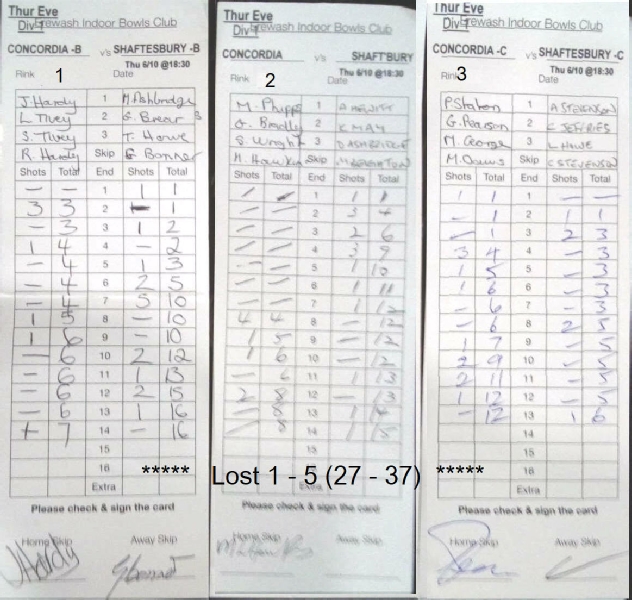 Thur Eve
Div1 Erewash Indoor Bowls Club
CONCORDIA -B v/s SHAFTESBURY -B
Thu 6/10 @18:30
Rink 1 Date
J. Hardy 1 M. Ashbridge
L Tivey 2 G. Brear
S. Tivey 3 T. Howe
R. Hardy Skip G Bonner
Shots Total End Shots Total
— — 1 1 1
3 3 2 — 1
— 3 3 1 2
1 4 4 — 2
— 4 5 1 3
— 4 6 2 5
— 4 7 5 10
1 5 8 — 10
1 6 9 — 10
— 6 10 2 12
— 6 11 1 13
— 6 12 2 15
— 6 13 1 16
+ 7 14 — 16
15
16
Extra
Please check & sign the card
Home Skip Away Skip
J Hardy
Thur Eve
Div1 Erewash Indoor Bowls Club
CONCORDIA v/s SHAFT'BURY
Thu 6/10 @18:30
Rink 2 Date
M. Phipps 1 A HEWITT
G. Bradly 2 C MAY
S. Wright 3
M. Hawkins Skip
Shots Total End Shots Total
/ — 1 1 1
— — 2 3 4
— — 3 2 6
— — 4 3 9
— — 5 1 10
— — 6 1 11
— — 7 1 12
4 4 8 — 12
1 5 9 — 12
1 6 10 — 12
— 6 11 1 13
2 8 12 — 13
— 8 13 1 14
— 8 14 1 15
15
16
Extra
Please check & sign the card
Home Skip Away Skip
Thur Eve
Div1 Erewash Indoor Bowls Club
CONCORDIA -C v/s SHAFTESBURY -C
Thu 6/10 @18:30
Rink 3 Date
P Staton 1 A STEVENSON
G. Pearson 2 C JEFFRIES
M. George 3 L HOWE
M. Davis Skip C STEVENSON
Shots Total End Shots Total
1 1 1 — —
— 1 2 1 1
— 1 3 2 3
3 4 4 — 3
1 5 5 — 3
1 6 6 — 3
— 6 7 — 3
— 6 8 2 5
1 7 9 — 5
2 9 10 — 5
2 11 11 — 5
1 12 12 — 5
— 12 13 1 6
14
15
16
Extra
Please check & sign the card
Home Skip Away Skip
***** Lost 1 - 5 (27 - 37) *****